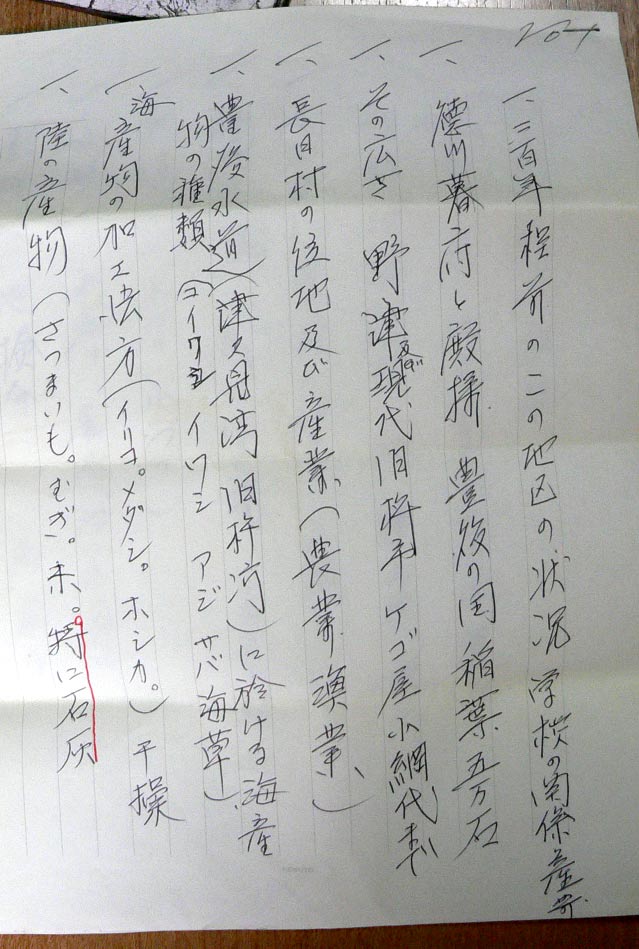 204
一、三百年程前のこの地区の状況 学校の関係 産業
一、徳川幕府と殿様 豊後の国 稲葉五万石
一、その広さ 野津及び現代 旧杵半 ケゴ屋 小網代まで
一、長目村の位地及び産業(農業、漁業、)
一、豊後水道(津久見湾 旧杵湾)に於ける海産
物の種類(コイワシ イワシ アジ サバ 海草)
一、海産物の加工法方(イリコ。メダシ。ホシカ。)干操
一、陸の産物(さつまいも。むぎ。米。特に石灰